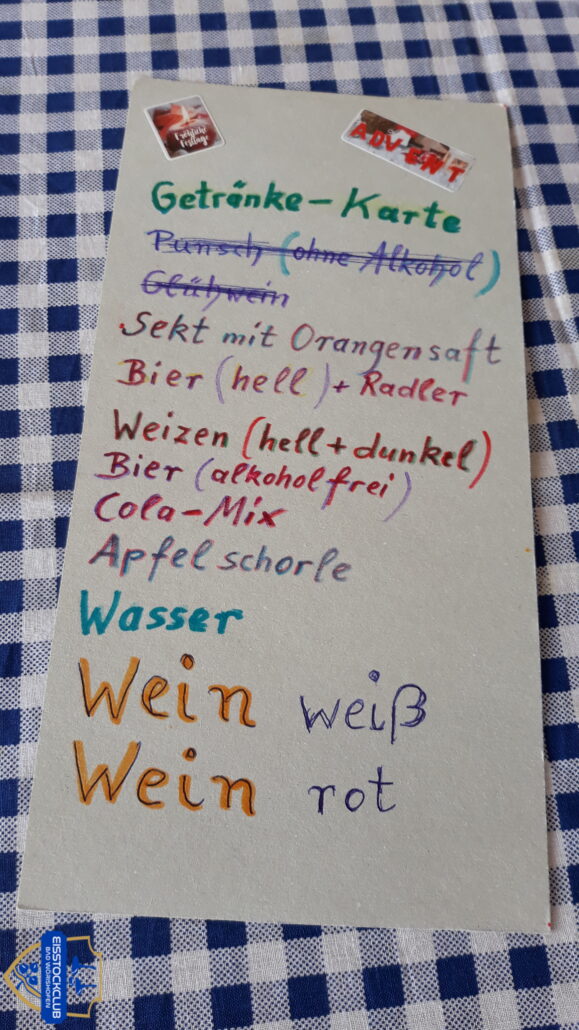 Fröhliche
Festtage
ADVENT
Getränke-Karte
Punsch (ohne Alkohol)
Glühwein
Sekt mit Orangensaft
Bier (hell) + Radler
Weizen (hell + dunkel)
Bier (alkoholfrei)
Cola-Mix
Apfelschorle
Wasser
Wein weiß
Wein rot
EISSTOCKCLUB
BAD WÖRISHOFEN